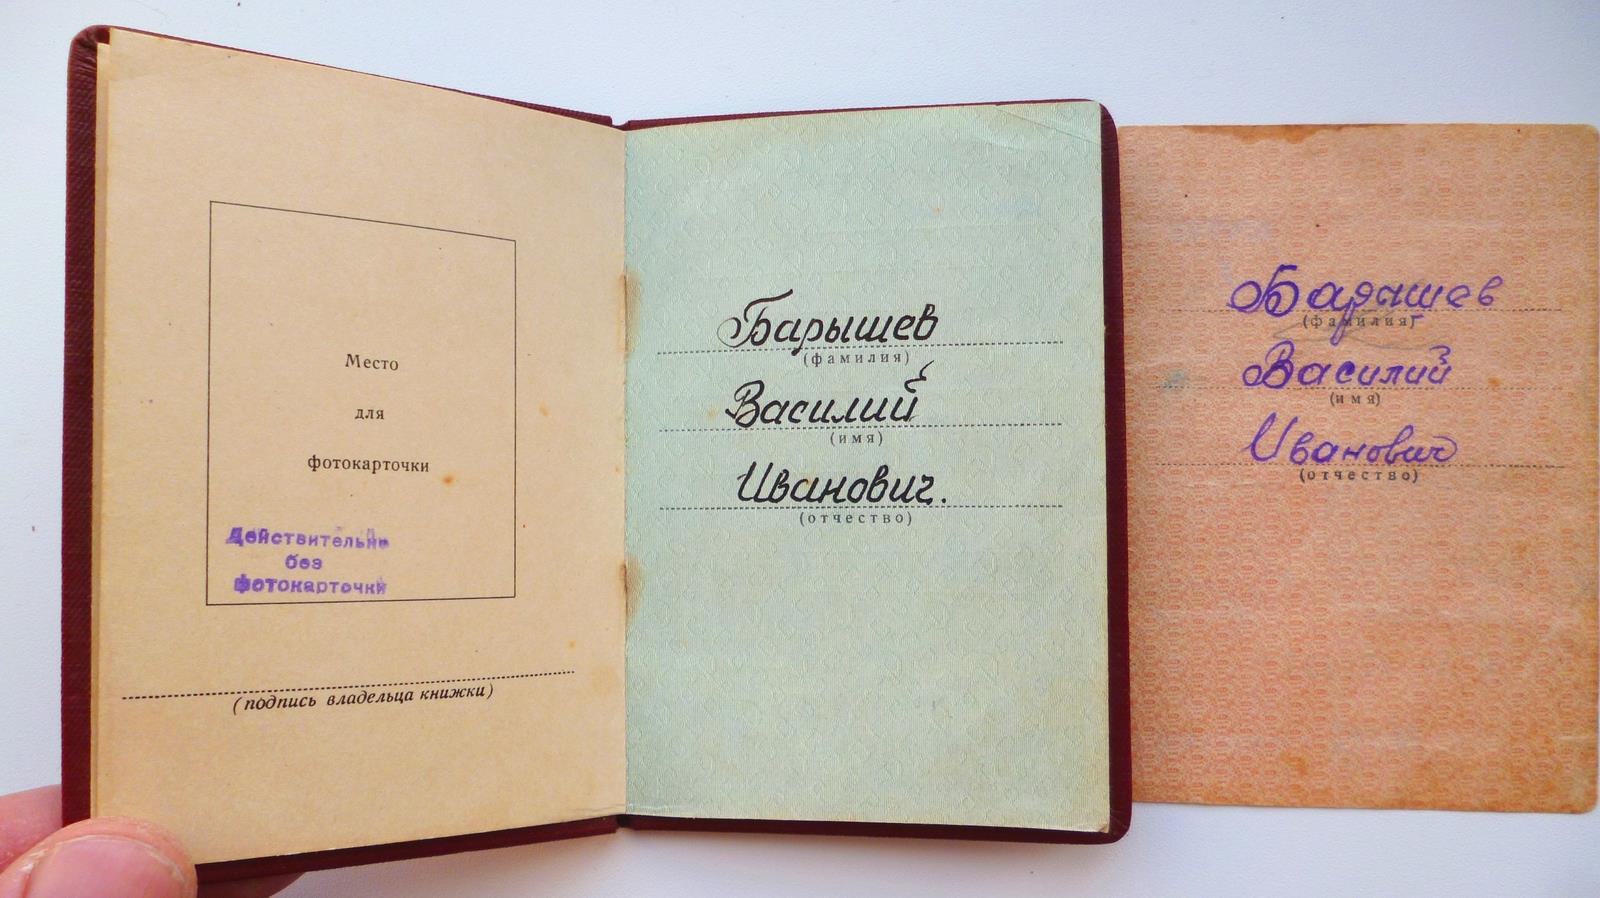 Место
для
фотокарточки
Действительно
без
фотокарточки
(подпись владельца книжки)
Барышев
(фамилия)
Василий
(имя)
Иванович.
(отчество)
Барышев
(фамилия)
Василий
(имя)
Иванович
(отчество)